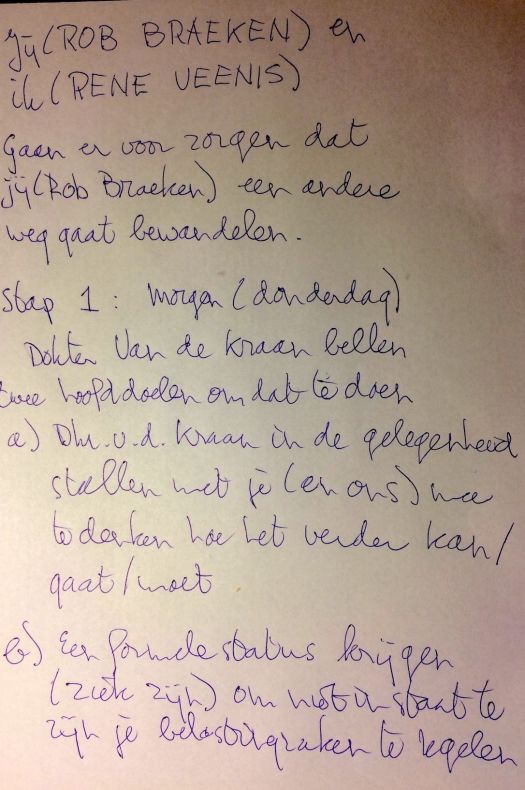 Jij (ROB BRAEKEN) en
ik (RENE VEENIS)
Gaan er voor zorgen dat
jij (Rob Braeken) een andere
weg gaat bewandelen.
stap 1 : morgen (donderdag)
Dokter Van de Kraan bellen
twee hoofddoelen om dat te doen
a) Dhr. v.d. Kraan in de gelegenheid
stellen met je (en ons) mee
te denken hoe het verder kan/
gaat/moet
b) Een formele status krijgen
(ziek zijn) om niet in staat te
zijn je belastingzaken te regelen